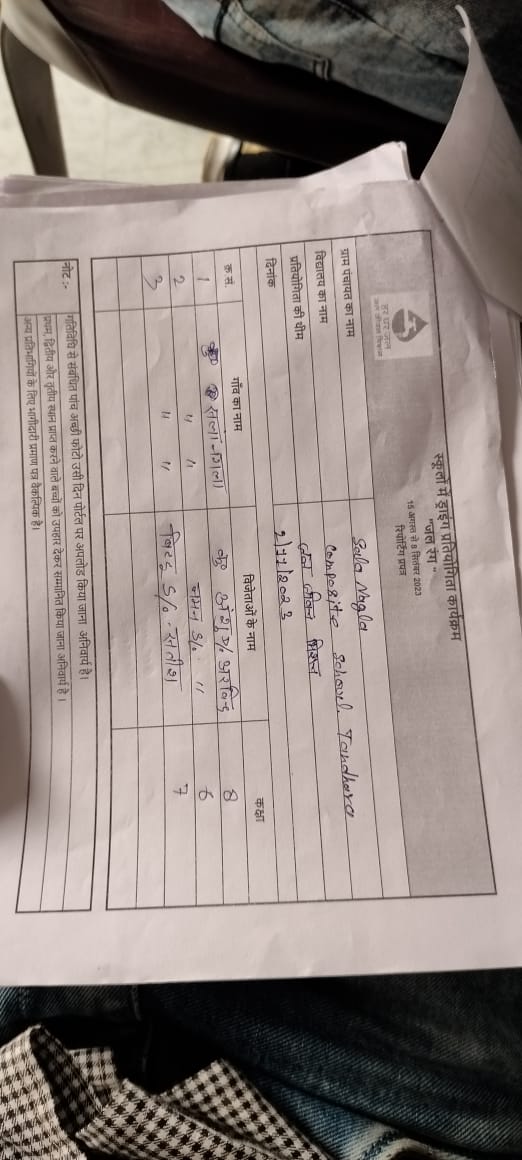 हर घर जल
जल जीवन मिशन
स्कूलों में ड्राइंग प्रतियोगिता कार्यक्रम
"जल रंग"
15 अगस्त से 8 सितंबर 2023
रिपोर्टिंग प्रपत्र
ग्राम पंचायत का नाम Sala Nagla
विद्यालय का नाम Composite School. Tandhera
प्रतियोगिता की थीम जल जीवन मिशन
दिनांक 2/11/2023
क्र सं. गाँव का नाम विजेताओं के नाम कक्षा
1 कु० अंशु अरविन्द 8
2 " " चमन S/o. " 6
3 " " बिट्टू S/o. सतीश 7
नोट :- गतिविधि से संबंधित पांच अच्छी फोटो उसी दिन पोर्टल पर अपलोड किया जाना अनिवार्य है।
प्रथम, द्वितीय और तृतीय स्थान प्राप्त करने वाले बच्चों को उपहार देकर सम्मानित किया जाना अनिवार्य है ।
अन्य प्रतिभागियों के लिए भागीदारी प्रमाण पत्र वैकल्पिक है।